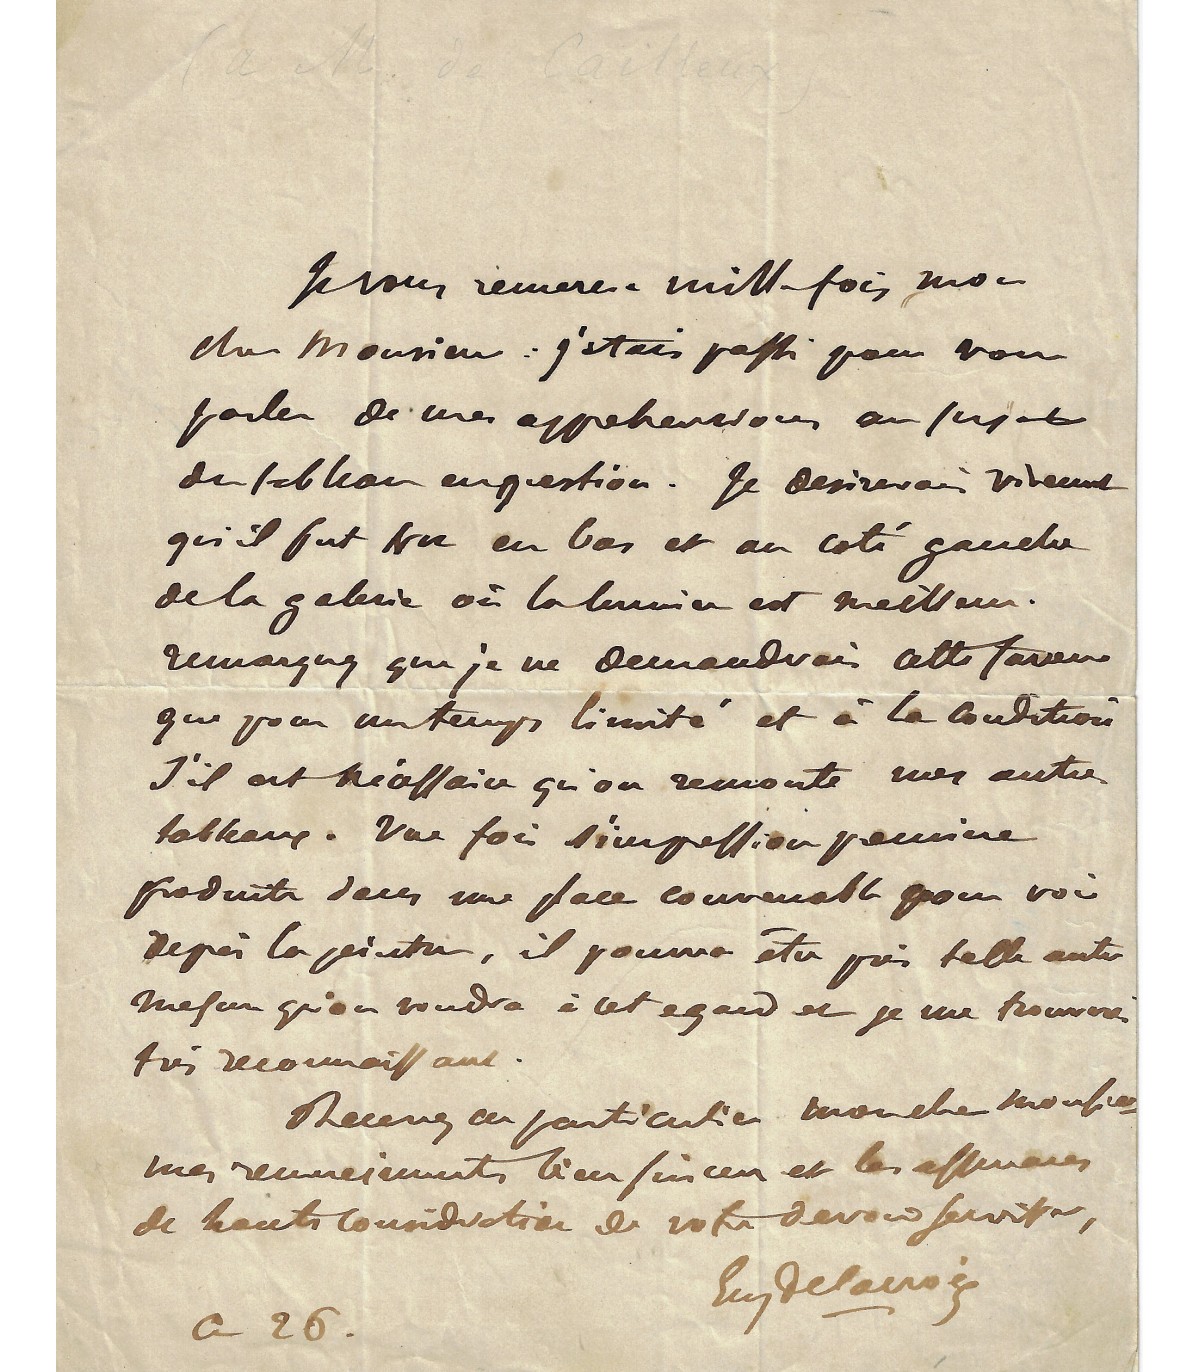 (a M. de Cailleux)
Je vous remercie mille fois mon
cher Monsieur : j'étais passé pour vous
parler de mes apprehensions au sujet
du tableau en question. Je desirerais vivement
qu'il fut en bas et au coté gauche
de la galerie où la lumiere est meilleure.
remarquez que je ne demanderais cette faveur
que pour un temps limité et à la condition
s'il est nécessaire qu'on remonte mes autres
tableaux. Une fois l'impression premiere
produite dans une place convenable pour voir
la peinture, il pourra être pris telle autre
mesure qu'on voudra à cet egard et je me trouverai
très reconnaissant.
Recevez en particulier mon cher monsieur
mes remerciements bien sinceres et les assurances
de haute consideration de votre devoué serviteur,
Eug Delacroix
Ce 26.